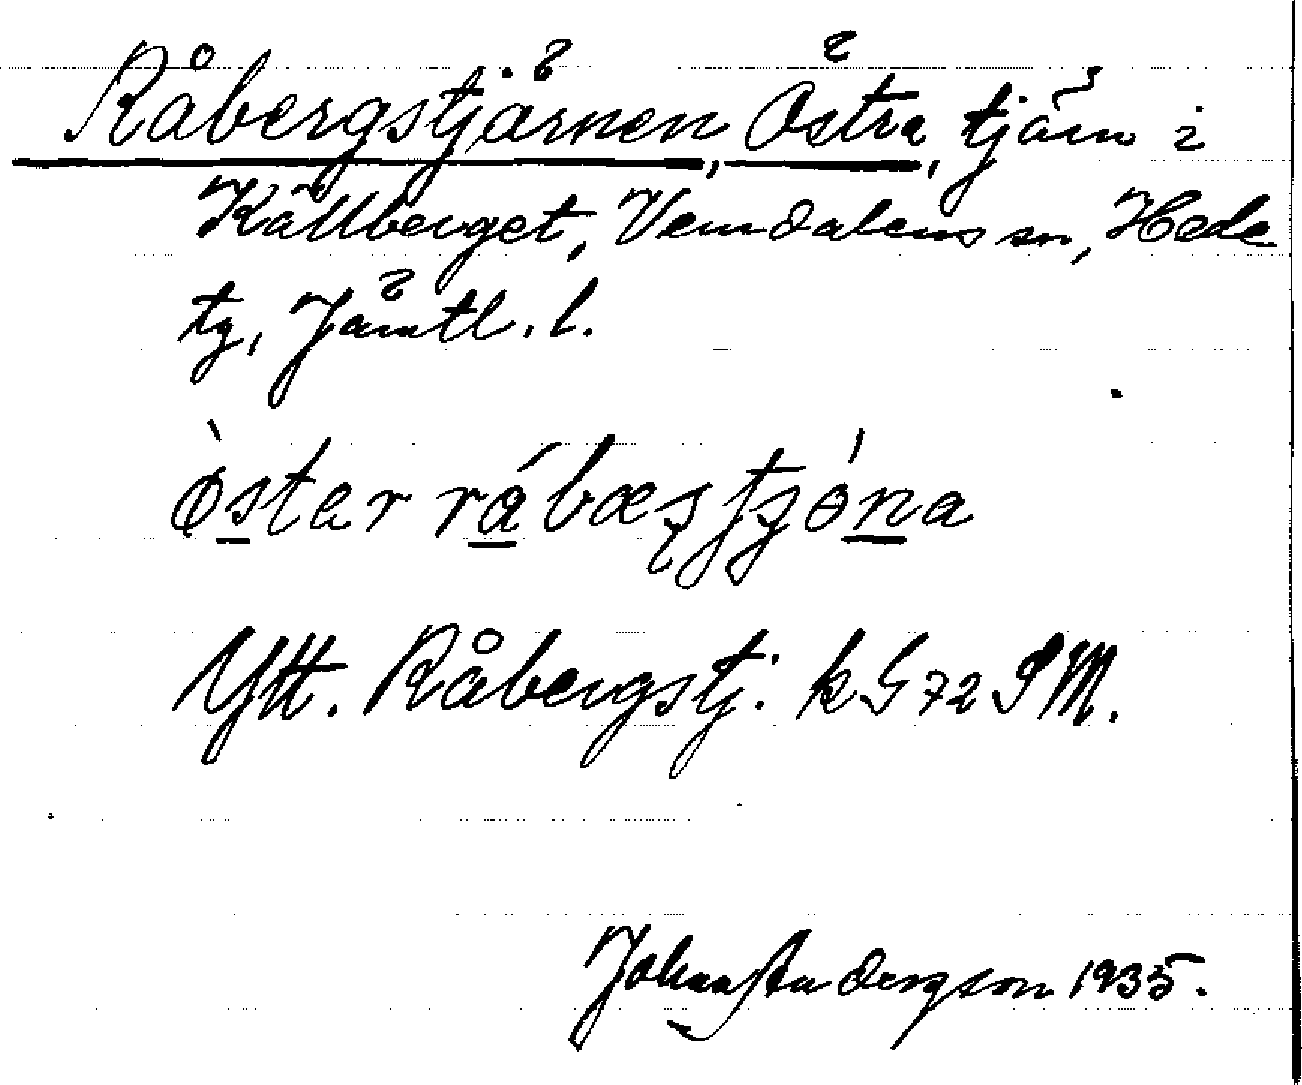 Råbergstjärnen, Östra, tjärn i
Källberget, Vemdalens sn, Hede
tg, Jämtl. l.
òstar rábæʂtʂǿna
Ytt. Råbergstj: k G 72 SM.
Johan Anderson 1935.